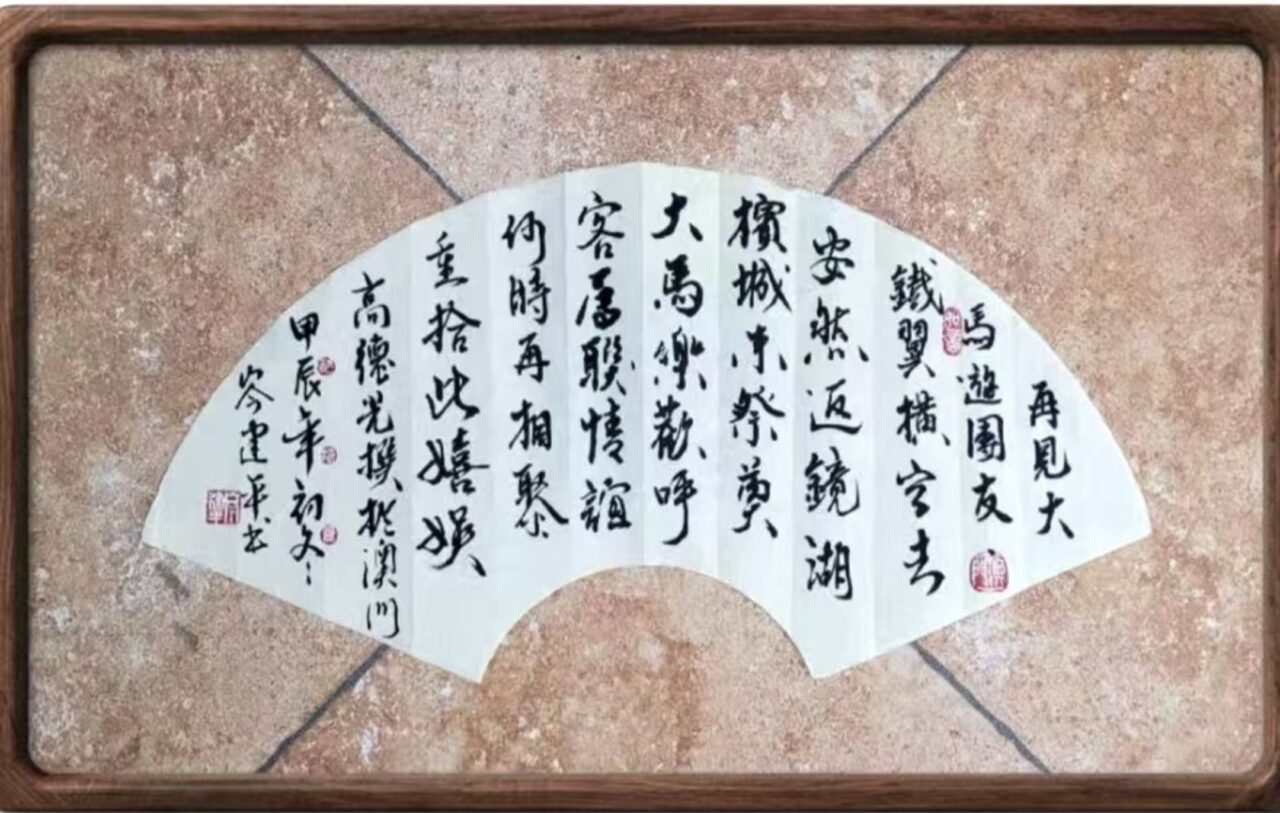 再見大
馬遊團友、
鐵翼橫空去
安然返鏡湖
檳城来祭奠
大馬樂歡呼
客屬聯情誼
何時再相聚
重拾此嬉娛
高德光撰於澳門
甲辰年初冬
岑建平书